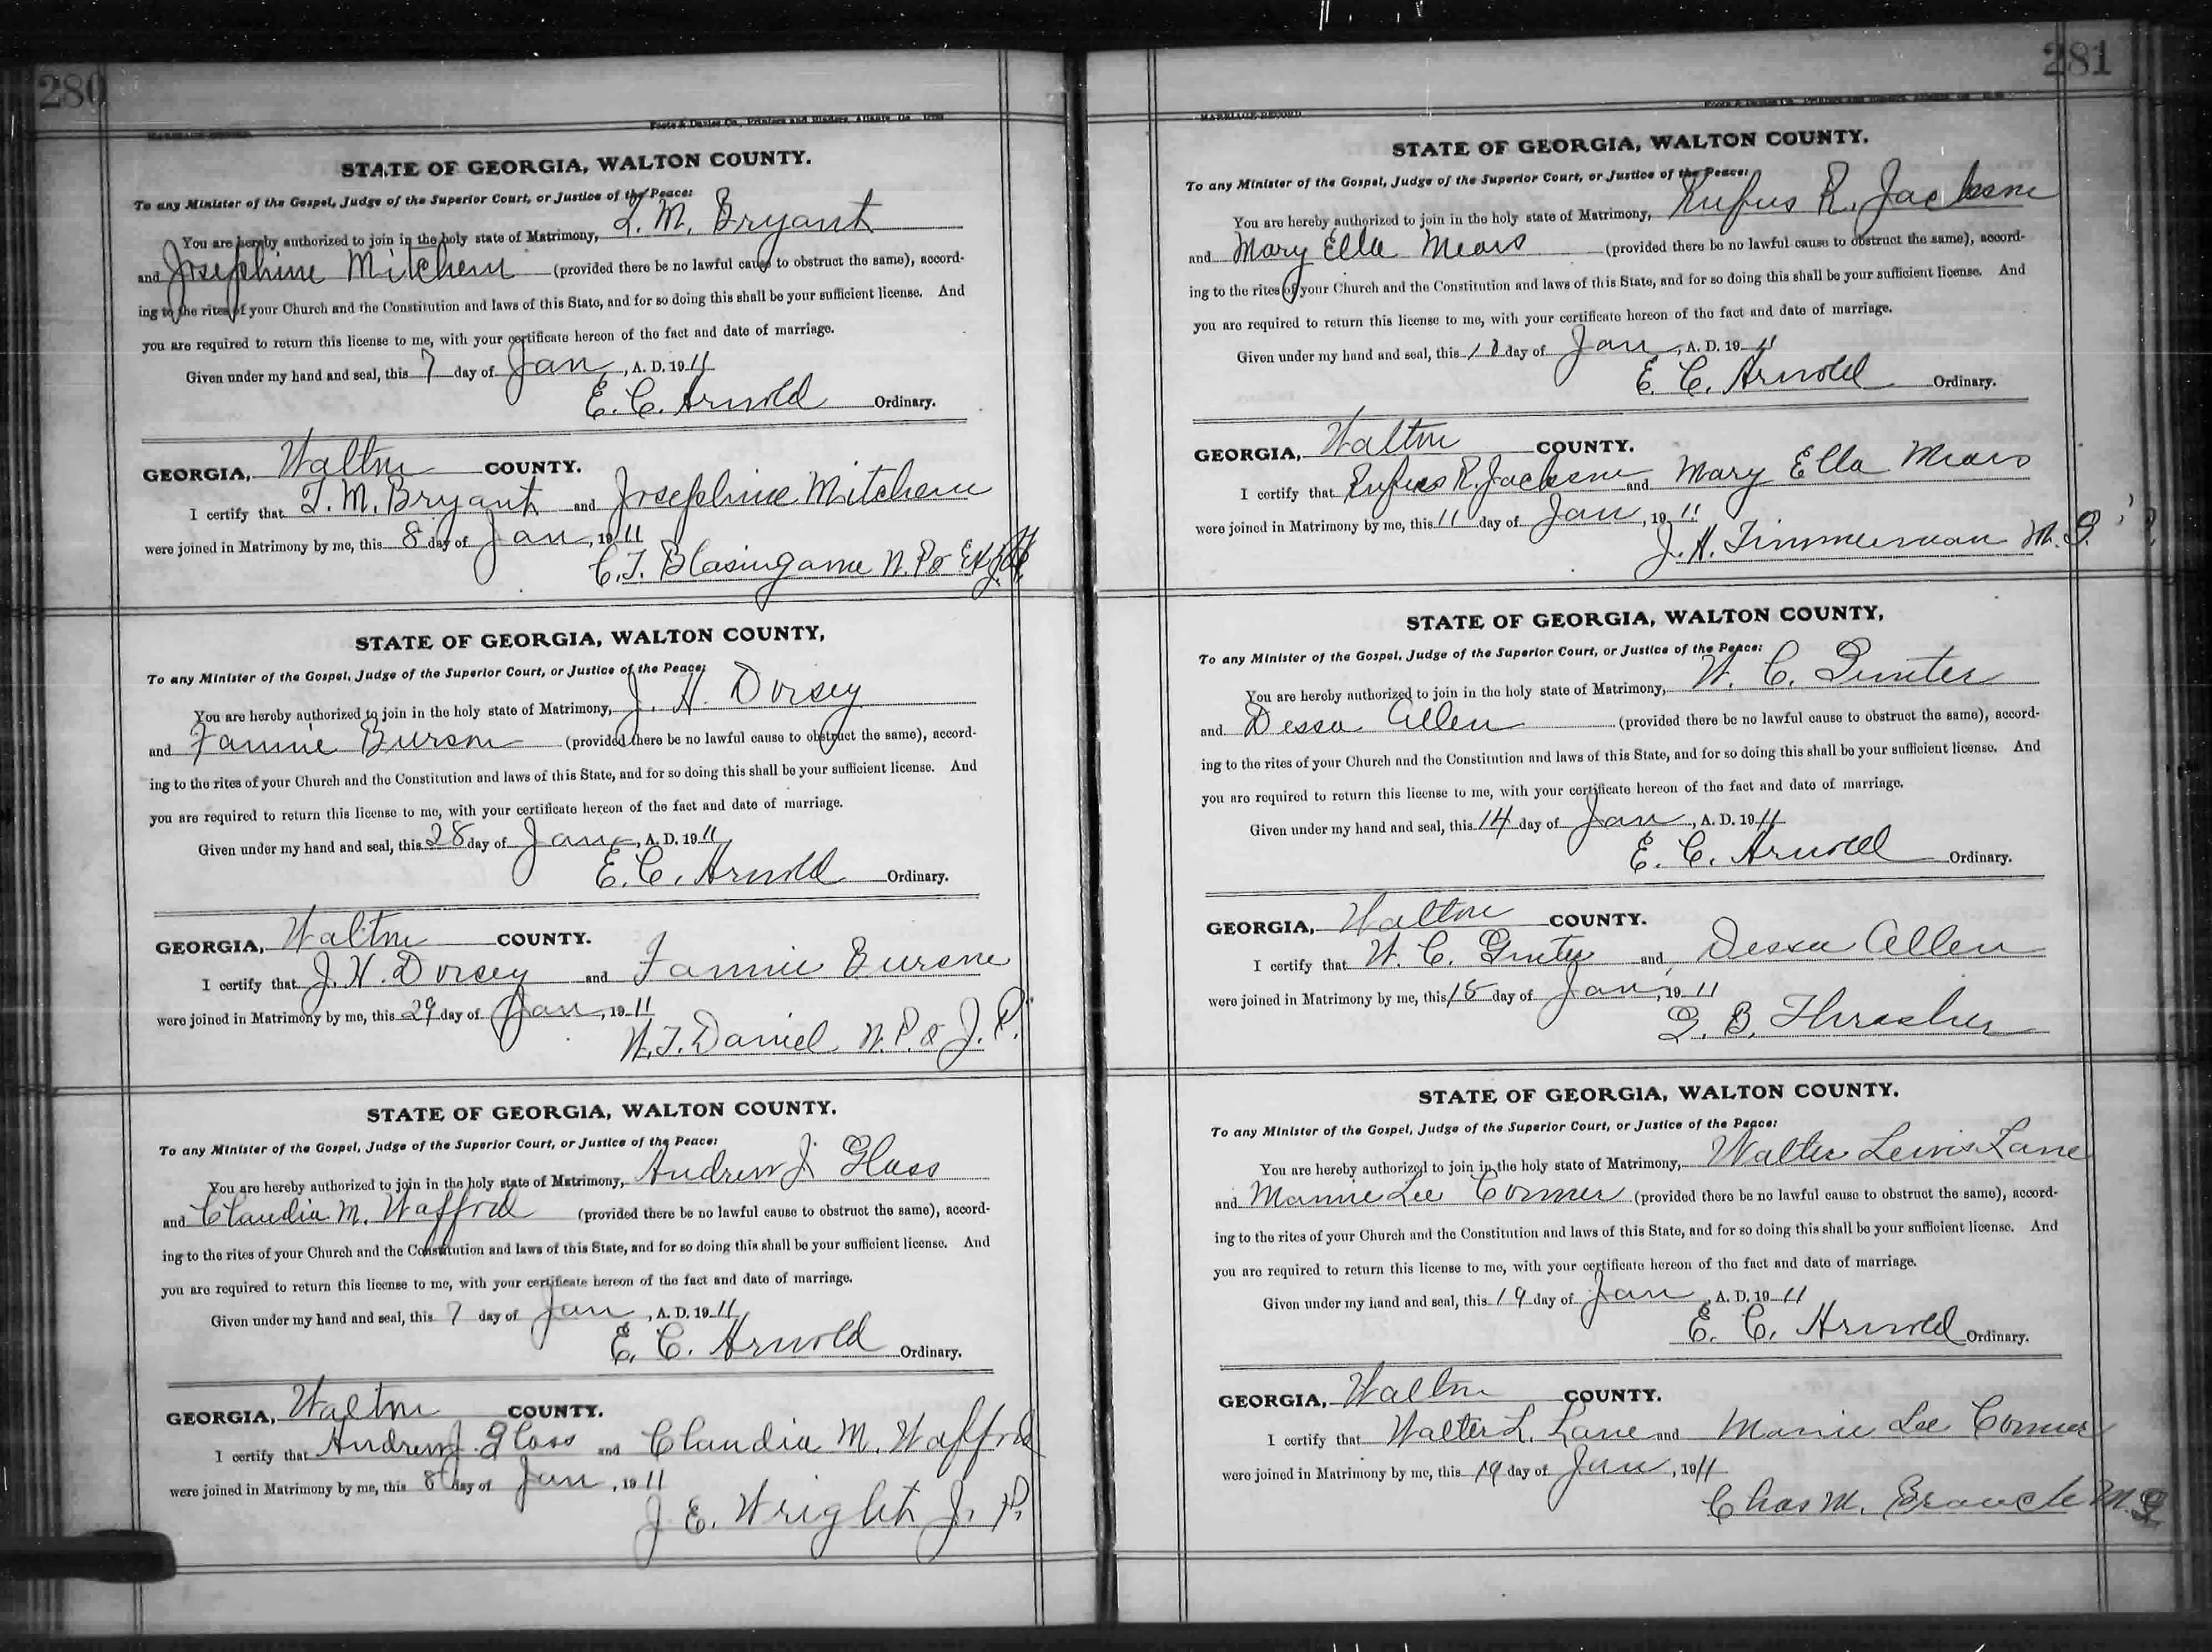 280
MARRIAGE RECORD
Foote & Davies Co., Printers and Binders, Atlanta, Ga.
STATE OF GEORGIA, WALTON COUNTY.
To any Minister of the Gospel, Judge of the Superior Court, or Justice of the Peace:
You are hereby authorized to join in the holy state of Matrimony, T. M. Bryant
and Josephine Mitchem (provided there be no lawful cause to obstruct the same), accord-
ing to the rites of your Church and the Constitution and laws of this State, and for so doing this shall be your sufficient license. And
you are required to return this license to me, with your certificate hereon of the fact and date of marriage.
Given under my hand and seal, this 7 day of Jan, A. D. 1911
E. C. Arnold Ordinary.
GEORGIA, Walton COUNTY.
I certify that T. M. Bryant and Josephine Mitchem
were joined in Matrimony by me, this 8 day of Jan, 1911
C. T. Blasingame N. P. & Ex
STATE OF GEORGIA, WALTON COUNTY,
To any Minister of the Gospel, Judge of the Superior Court, or Justice of the Peace:
You are hereby authorized to join in the holy state of Matrimony, J. H. Dorsey
and Fannie Burson (provided there be no lawful cause to obstruct the same), accord-
ing to the rites of your Church and the Constitution and laws of this State, and for so doing this shall be your sufficient license. And
you are required to return this license to me, with your certificate hereon of the fact and date of marriage.
Given under my hand and seal, this 28 day of Jan, A. D. 1911
E. C. Arnold Ordinary.
GEORGIA, Walton COUNTY.
I certify that J. H. Dorsey and Fannie Burson
were joined in Matrimony by me, this 29 day of Jan, 1911
W. T. Daniel N. P. & J. P.
STATE OF GEORGIA, WALTON COUNTY.
To any Minister of the Gospel, Judge of the Superior Court, or Justice of the Peace:
You are hereby authorized to join in the holy state of Matrimony, Andrew J. Glass
and Claudia M. Wafford (provided there be no lawful cause to obstruct the same), accord-
ing to the rites of your Church and the Constitution and laws of this State, and for so doing this shall be your sufficient license. And
you are required to return this license to me, with your certificate hereon of the fact and date of marriage.
Given under my hand and seal, this 7 day of Jan, A. D. 1911
E. C. Arnold Ordinary.
GEORGIA, Walton COUNTY.
I certify that Andrew J. Glass and Claudia M. Wafford
were joined in Matrimony by me, this 8th day of Jan, 1911
J. E. Wright J. P.
281
MARRIAGE RECORD
STATE OF GEORGIA, WALTON COUNTY.
To any Minister of the Gospel, Judge of the Superior Court, or Justice of the Peace:
You are hereby authorized to join in the holy state of Matrimony, Rufus R. Jackson
and Mary Ella Mears (provided there be no lawful cause to obstruct the same), accord-
ing to the rites of your Church and the Constitution and laws of this State, and for so doing this shall be your sufficient license. And
you are required to return this license to me, with your certificate hereon of the fact and date of marriage.
Given under my hand and seal, this day of Jan, A. D. 1911
E. C. Arnold Ordinary.
GEORGIA, Walton COUNTY.
I certify that Rufus R. Jackson and Mary Ella Mears
were joined in Matrimony by me, this 11 day of Jan, 1911
J. H. Timmerman M. G.
STATE OF GEORGIA, WALTON COUNTY,
To any Minister of the Gospel, Judge of the Superior Court, or Justice of the Peace:
You are hereby authorized to join in the holy state of Matrimony, W. C. Gunter
and Dessa Allen (provided there be no lawful cause to obstruct the same), accord-
ing to the rites of your Church and the Constitution and laws of this State, and for so doing this shall be your sufficient license. And
you are required to return this license to me, with your certificate hereon of the fact and date of marriage.
Given under my hand and seal, this 14 day of Jan, A. D. 1911
E. C. Arnold Ordinary.
GEORGIA, Walton COUNTY.
I certify that W. C. Gunter and Dessa Allen
were joined in Matrimony by me, this 15 day of Jan, 1911
G. B. Thrasher
STATE OF GEORGIA, WALTON COUNTY.
To any Minister of the Gospel, Judge of the Superior Court, or Justice of the Peace:
You are hereby authorized to join in the holy state of Matrimony, Walter Lewis Lane
and Mannie Lee Conner (provided there be no lawful cause to obstruct the same), accord-
ing to the rites of your Church and the Constitution and laws of this State, and for so doing this shall be your sufficient license. And
you are required to return this license to me, with your certificate hereon of the fact and date of marriage.
Given under my hand and seal, this 19 day of Jan, A. D. 1911
E. C. Arnold Ordinary.
GEORGIA, Walton COUNTY.
I certify that Walter L. Lane and Mannie Lee Conner
were joined in Matrimony by me, this 19 day of Jan, 1911
Chas M. Branch M. G.